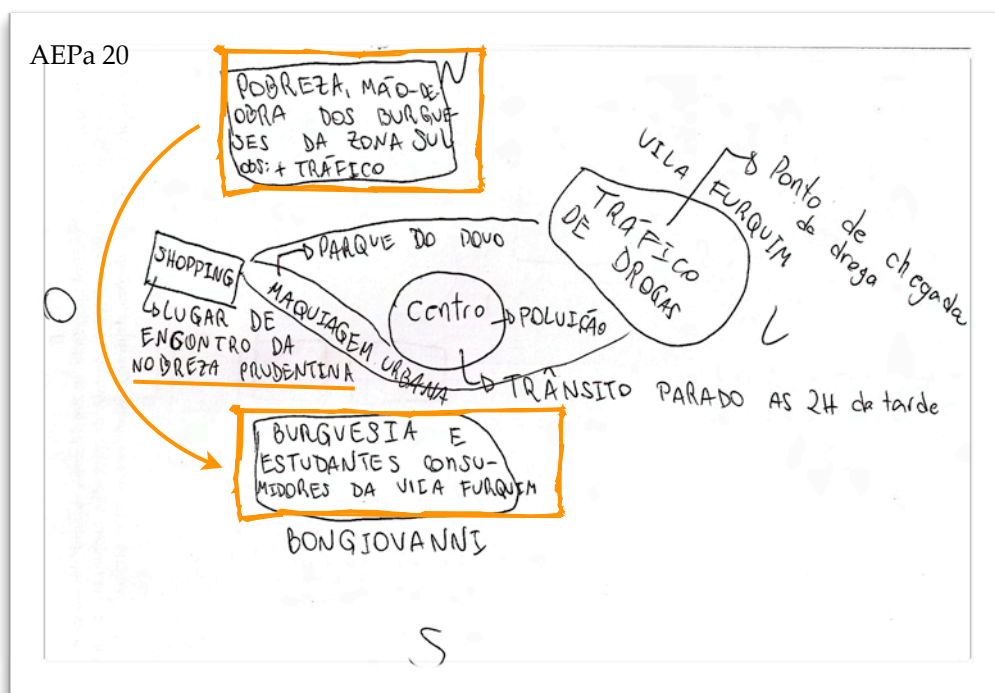 AEPa 20
N
POBREZA, MÃO-DE-
OBRA DOS BURGUE-
SES DA ZONA SUL
obs: + TRÁFICO
VILA FURQUIM
Ponto de chegada
da droga
TRÁFICO
DE DROGAS
PARQUE DO POVO
SHOPPING
LUGAR DE
ENCONTRO DA
NOBREZA PRUDENTINA
MAQUIAGEM URBANA
Centro
POLUIÇÃO
TRÂNSITO PARADO AS 2H da tarde
O
L
BURGUESIA E
ESTUDANTES CONSU-
MIDORES DA VILA FURQUIM
BONGIOVANNI
S